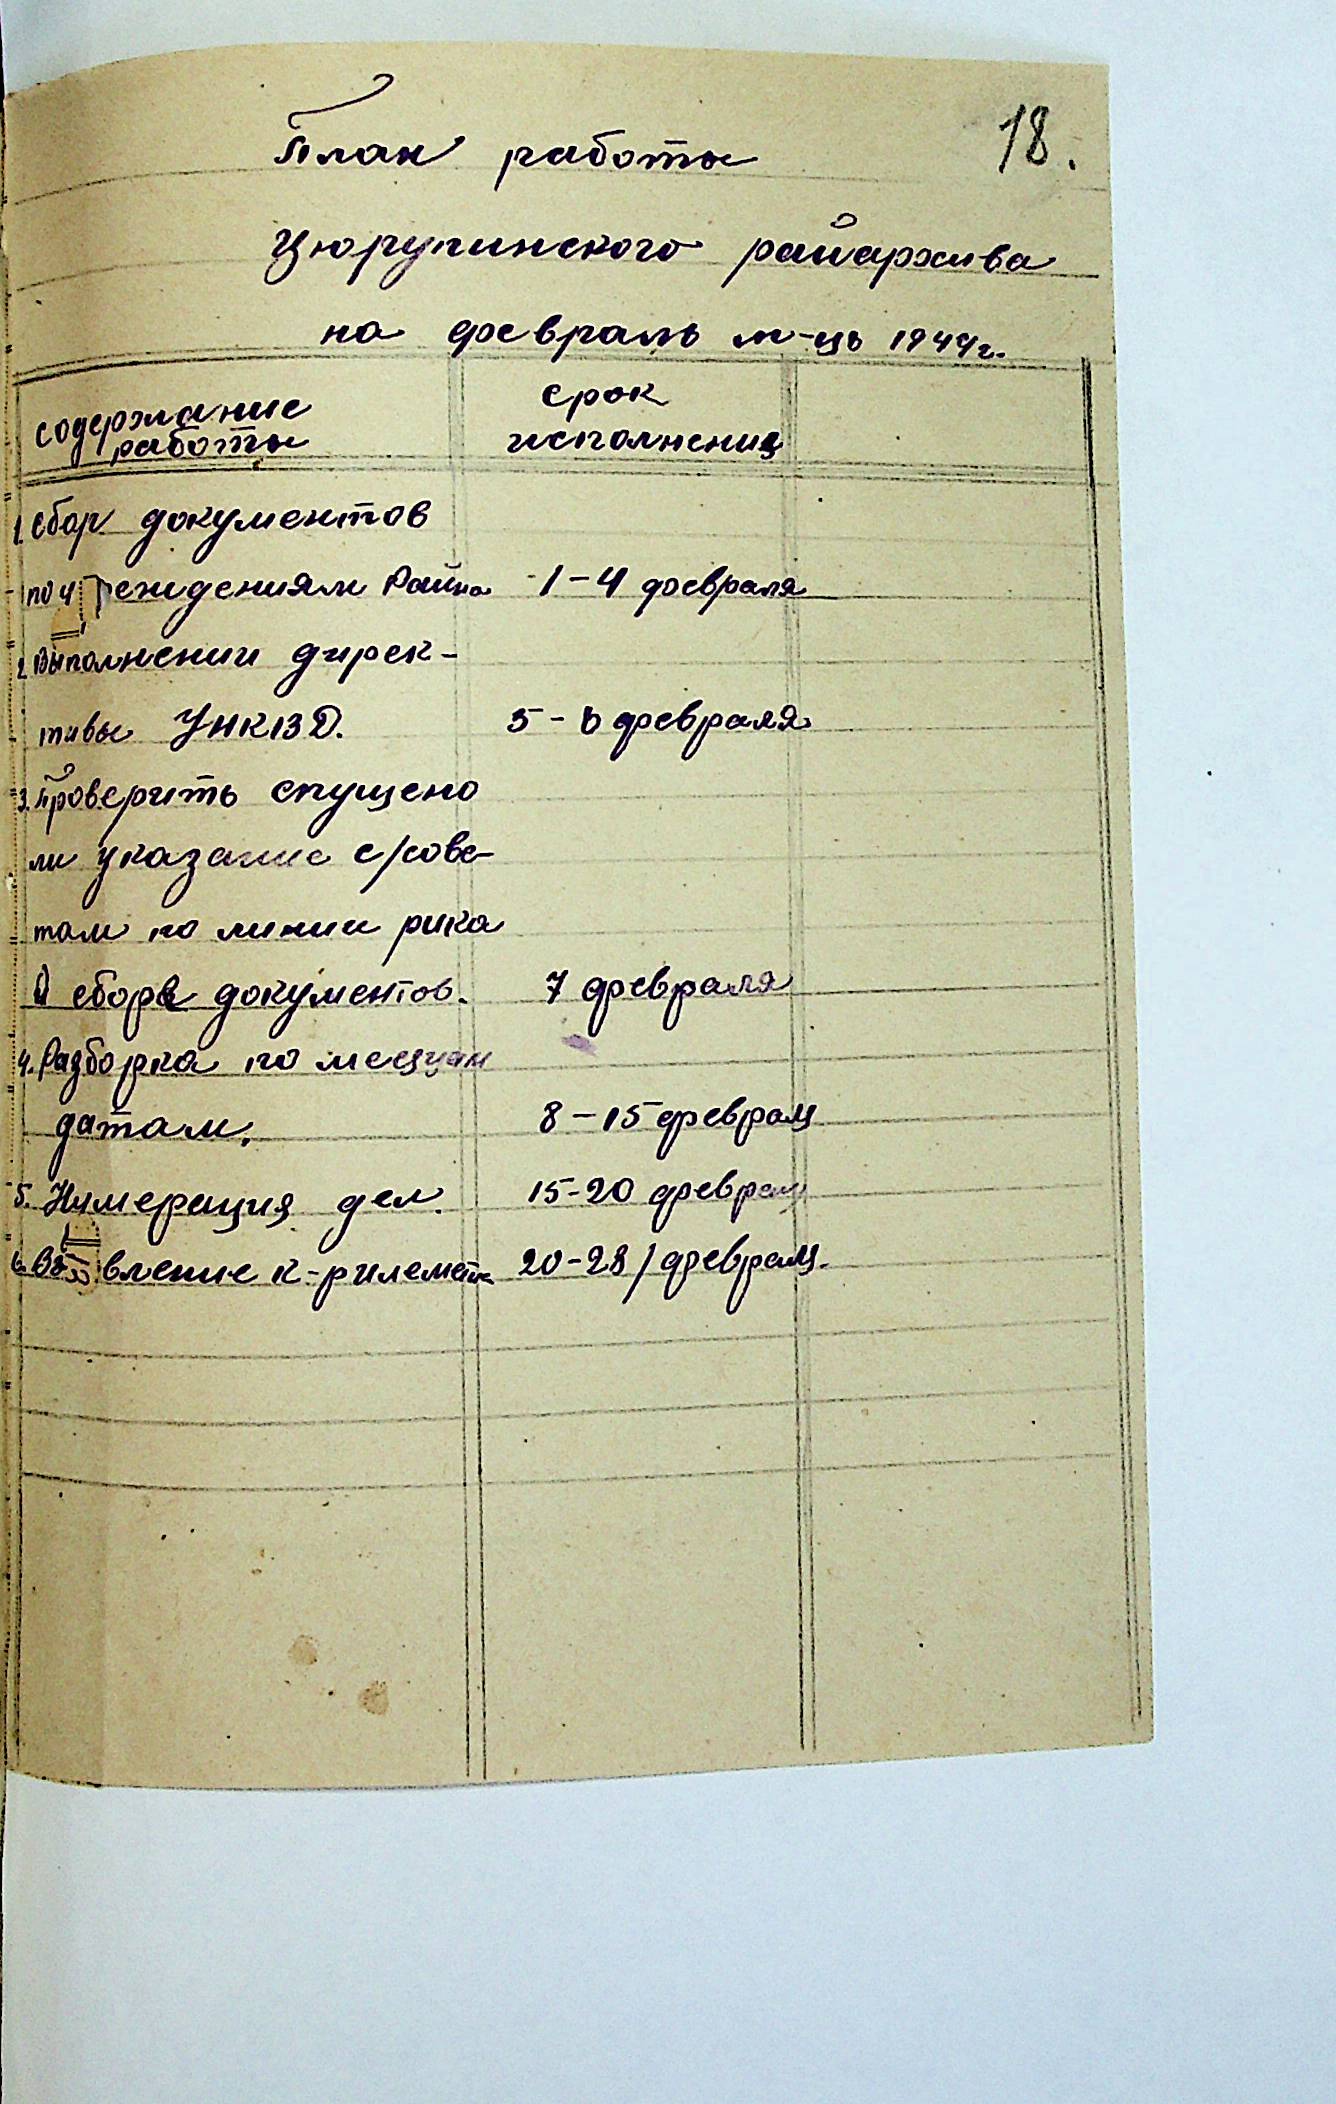 18.
План работы
Цюрупинского райархива
на февраль м-ць 1944г.
содержание срок
работы исполнения
1. Сбор документов
по учреждениям Района 1-4 февраля
2. Выполнении дирек-
тивы УНКВД. 5-6 февраля
3. Проверить спущено
ли указание с/сове-
там по линии рика
О сборе документов. 7 февраля
4. Разборка по месяцам
датам. 8-15 февраля
5. Нумерация дел. 15-20 февраля
6. вление 20-28/февраля.